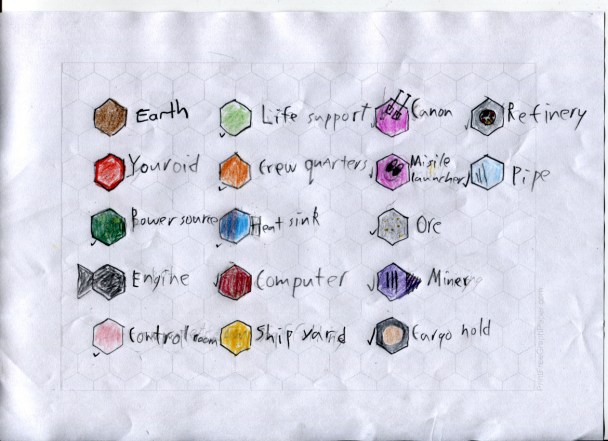 Earth
Youroid
Bower source
Engine
Control room
Life support
Crew quarters
Heat sink
Computer
Ship yard
Canon
Misile
launcher
Ore
Miner
Cargo hold
Refinery
Pipe